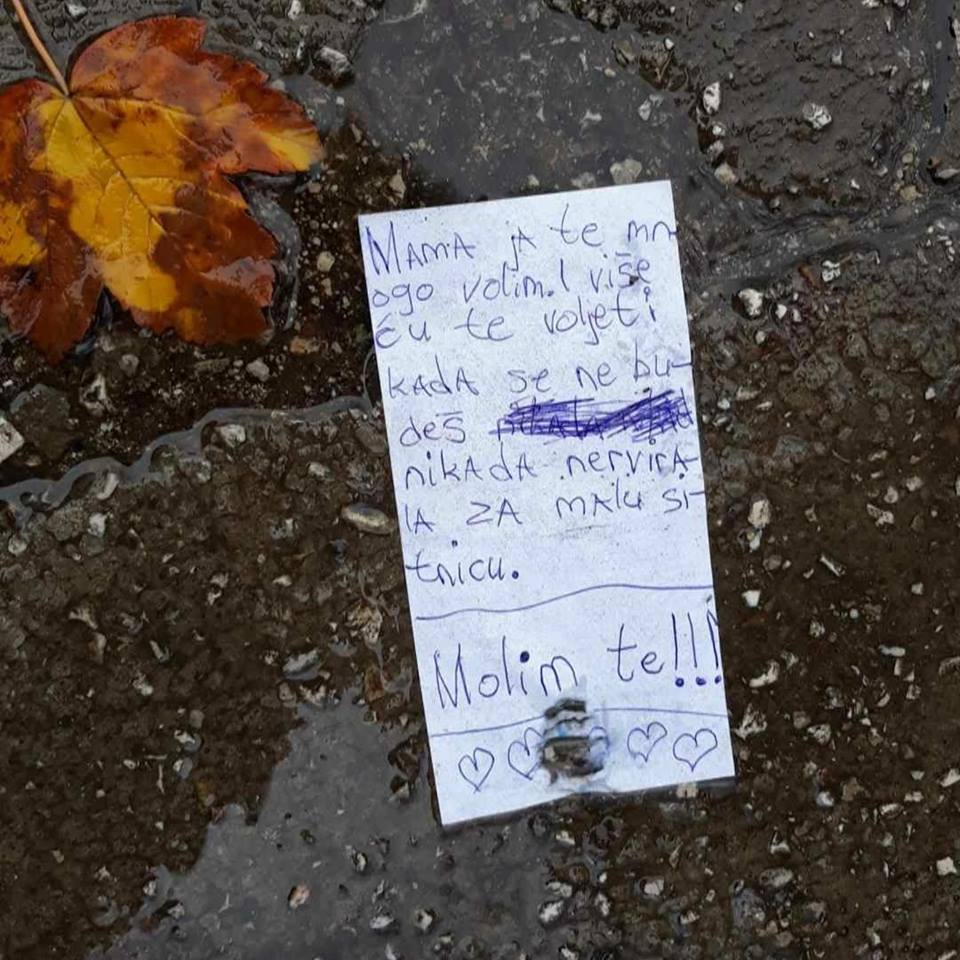 MAMA jA te mn-
ogo volim.I više
ću te voljeti
kAdA se ne bu-
deš
nikAdA nervirA-
lA ZA mAlu si-
tnicu.
Molim te!!!